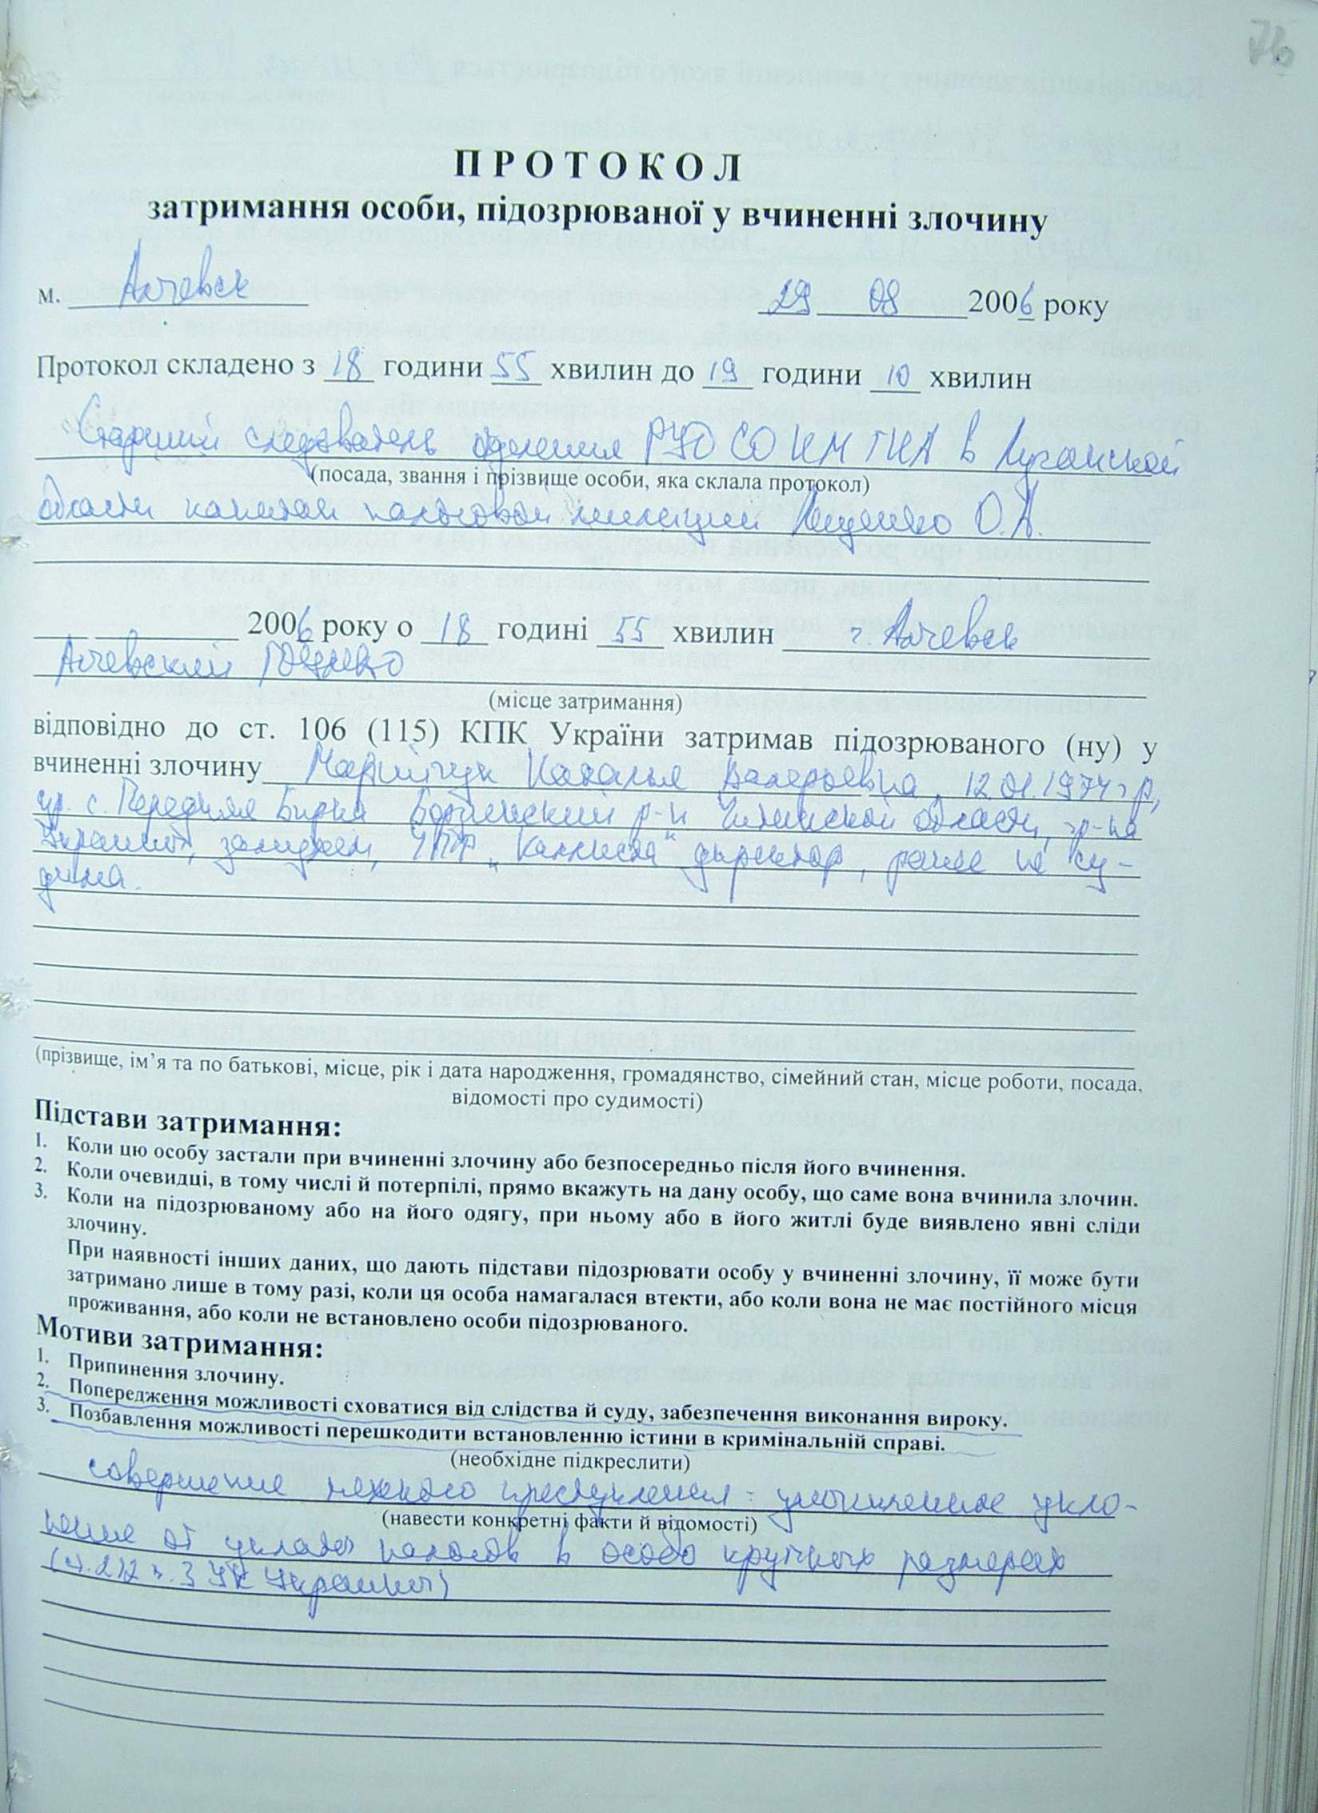 76
ПРОТОКОЛ
затримання особи, підозрюваної у вчиненні злочину
м. Алчевск 29 08 2006 року
Протокол складено з 18 години 55 хвилин до 19 години 10 хвилин
Старший следователь отделения РУО СО НМ ГНА в Луганской
(посада, звання і прізвище особи, яка склала протокол)
области капитан налоговой милиции О.А.
2006 року о 18 годині 55 хвилин г. Алчевск
Алчевский
(місце затримання)
відповідно до ст. 106 (115) КПК України затримав підозрюваного (ну) у
вчиненні злочину Марийчук Наталья Валерьевна, 12.01.1974 г.р,
ур. с. Передняя Бырка Борзинский р-н Читинской области, гр-на
Украины, замужем, ЧПФ "Каллиста" директор, ранее не су-
дима.
(прізвище, ім’я та по батькові, місце, рік і дата народження, громадянство, сімейний стан, місце роботи, посада,
відомості про судимості)
Підстави затримання:
1. Коли цю особу застали при вчиненні злочину або безпосередньо після його вчинення.
2. Коли очевидці, в тому числі й потерпілі, прямо вкажуть на дану особу, що саме вона вчинила злочин.
3. Коли на підозрюваному або на його одягу, при ньому або в його житлі буде виявлено явні сліди
злочину.
При наявності інших даних, що дають підстави підозрювати особу у вчиненні злочину, її може бути
затримано лише в тому разі, коли ця особа намагалася втекти, або коли вона не має постійного місця
проживання, або коли не встановлено особи підозрюваного.
Мотиви затримання:
1. Припинення злочину.
2. Попередження можливості сховатися від слідства й суду, забезпечення виконання вироку.
3. Позбавлення можливості перешкодити встановленню істини в кримінальній справі.
(необхідне підкреслити)
совершение тяжкого преступления - умышленное укло-
(навести конкретні факти й відомості)
нение от уплаты налогов в особо крупных размерах
(ст.212 ч.3 УК Украины)